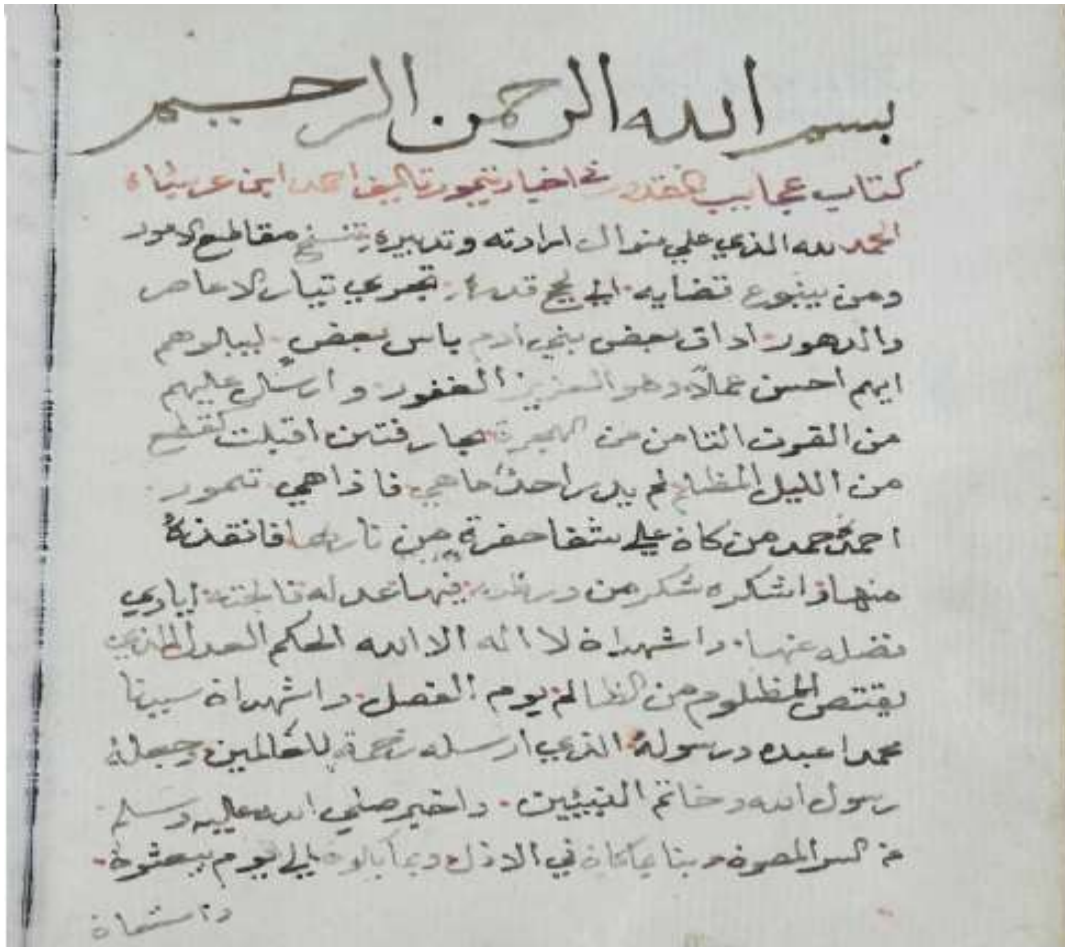 بسم الله الرحمن الرحيم
كتاب عجايب المقدور في اخبار تيمور تاليف احمد ابن عربشاه
الحمد لله الذي علي منوال ارادته وتدبيره تنسج مقاطع الامور
ومن ينبوع قضايه الي لجج قدره تجري تيار الاعاصر
والدهور اذاق بعض بني ادم باس بعض ليبلوهم
ايهم احسن عملا وهو العزيز الغفور وارسل عليهم
من القرن الثامن من الهجرة بحار فتن اقبلت كقطع
من الليل المظلم لم يدر احد ما هي فاذا هي تمور
احمده حمد من كان علي شفا حفرة من نارها فانقذه
منها واشكره شكر من فيها عدله ايادي
فضله عنها واشهد ان لا اله الا الله الحكم العدل الذي
يقتص للمظلوم من الظالم يوم الفصل واشهد ان سيدنا
محمدا عبده ورسوله الذي ارسله رحمة للعالمين وجعله
رسول الله وخاتم النبيين واخبر صلي الله عليه وسلم
عن السر المصون بما كان في الازل وبما يكون الي يوم يبعثون